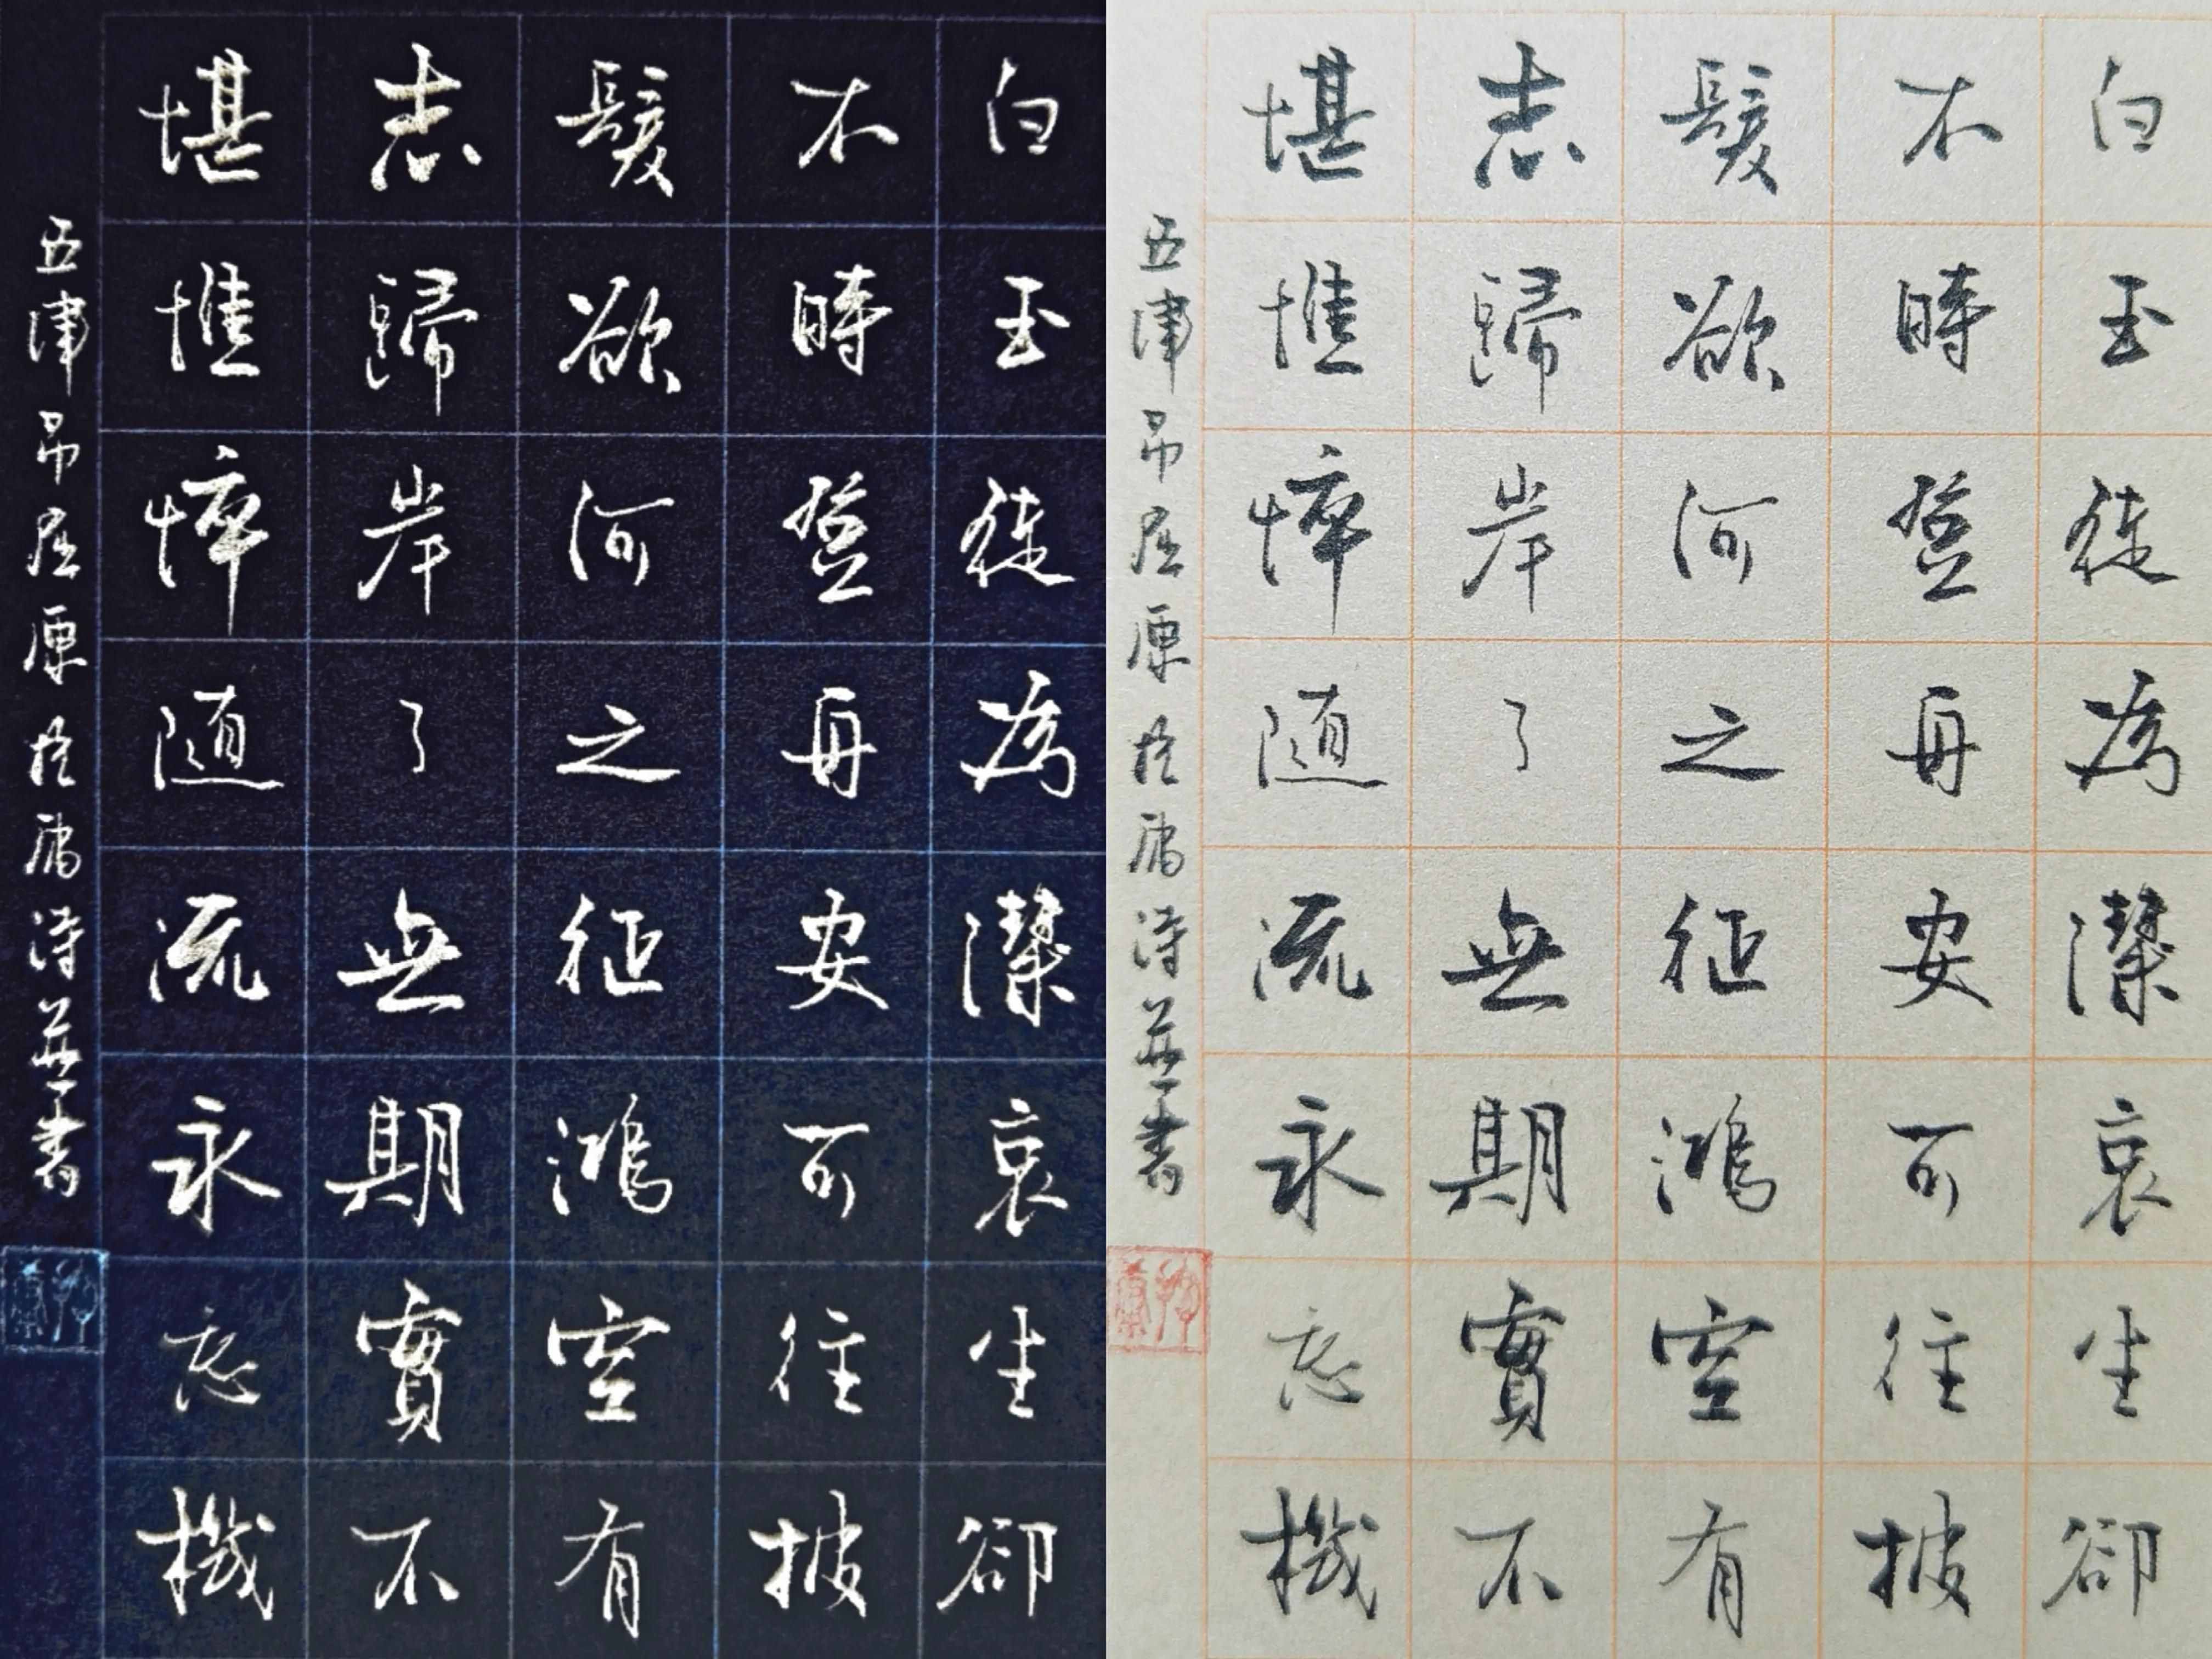 白玉徒為潔哀生卻
不時登舟安可往披
髮欲何之征鴻空有
志歸岸了無期實不
堪憔悴隨流永忘機
五律吊屈原詩並書
白玉徒為潔哀生卻
不時登舟安可往披
髮欲何之征鴻空有
志歸岸了無期實不
堪憔悴隨流永忘機
五律吊屈原詩並書